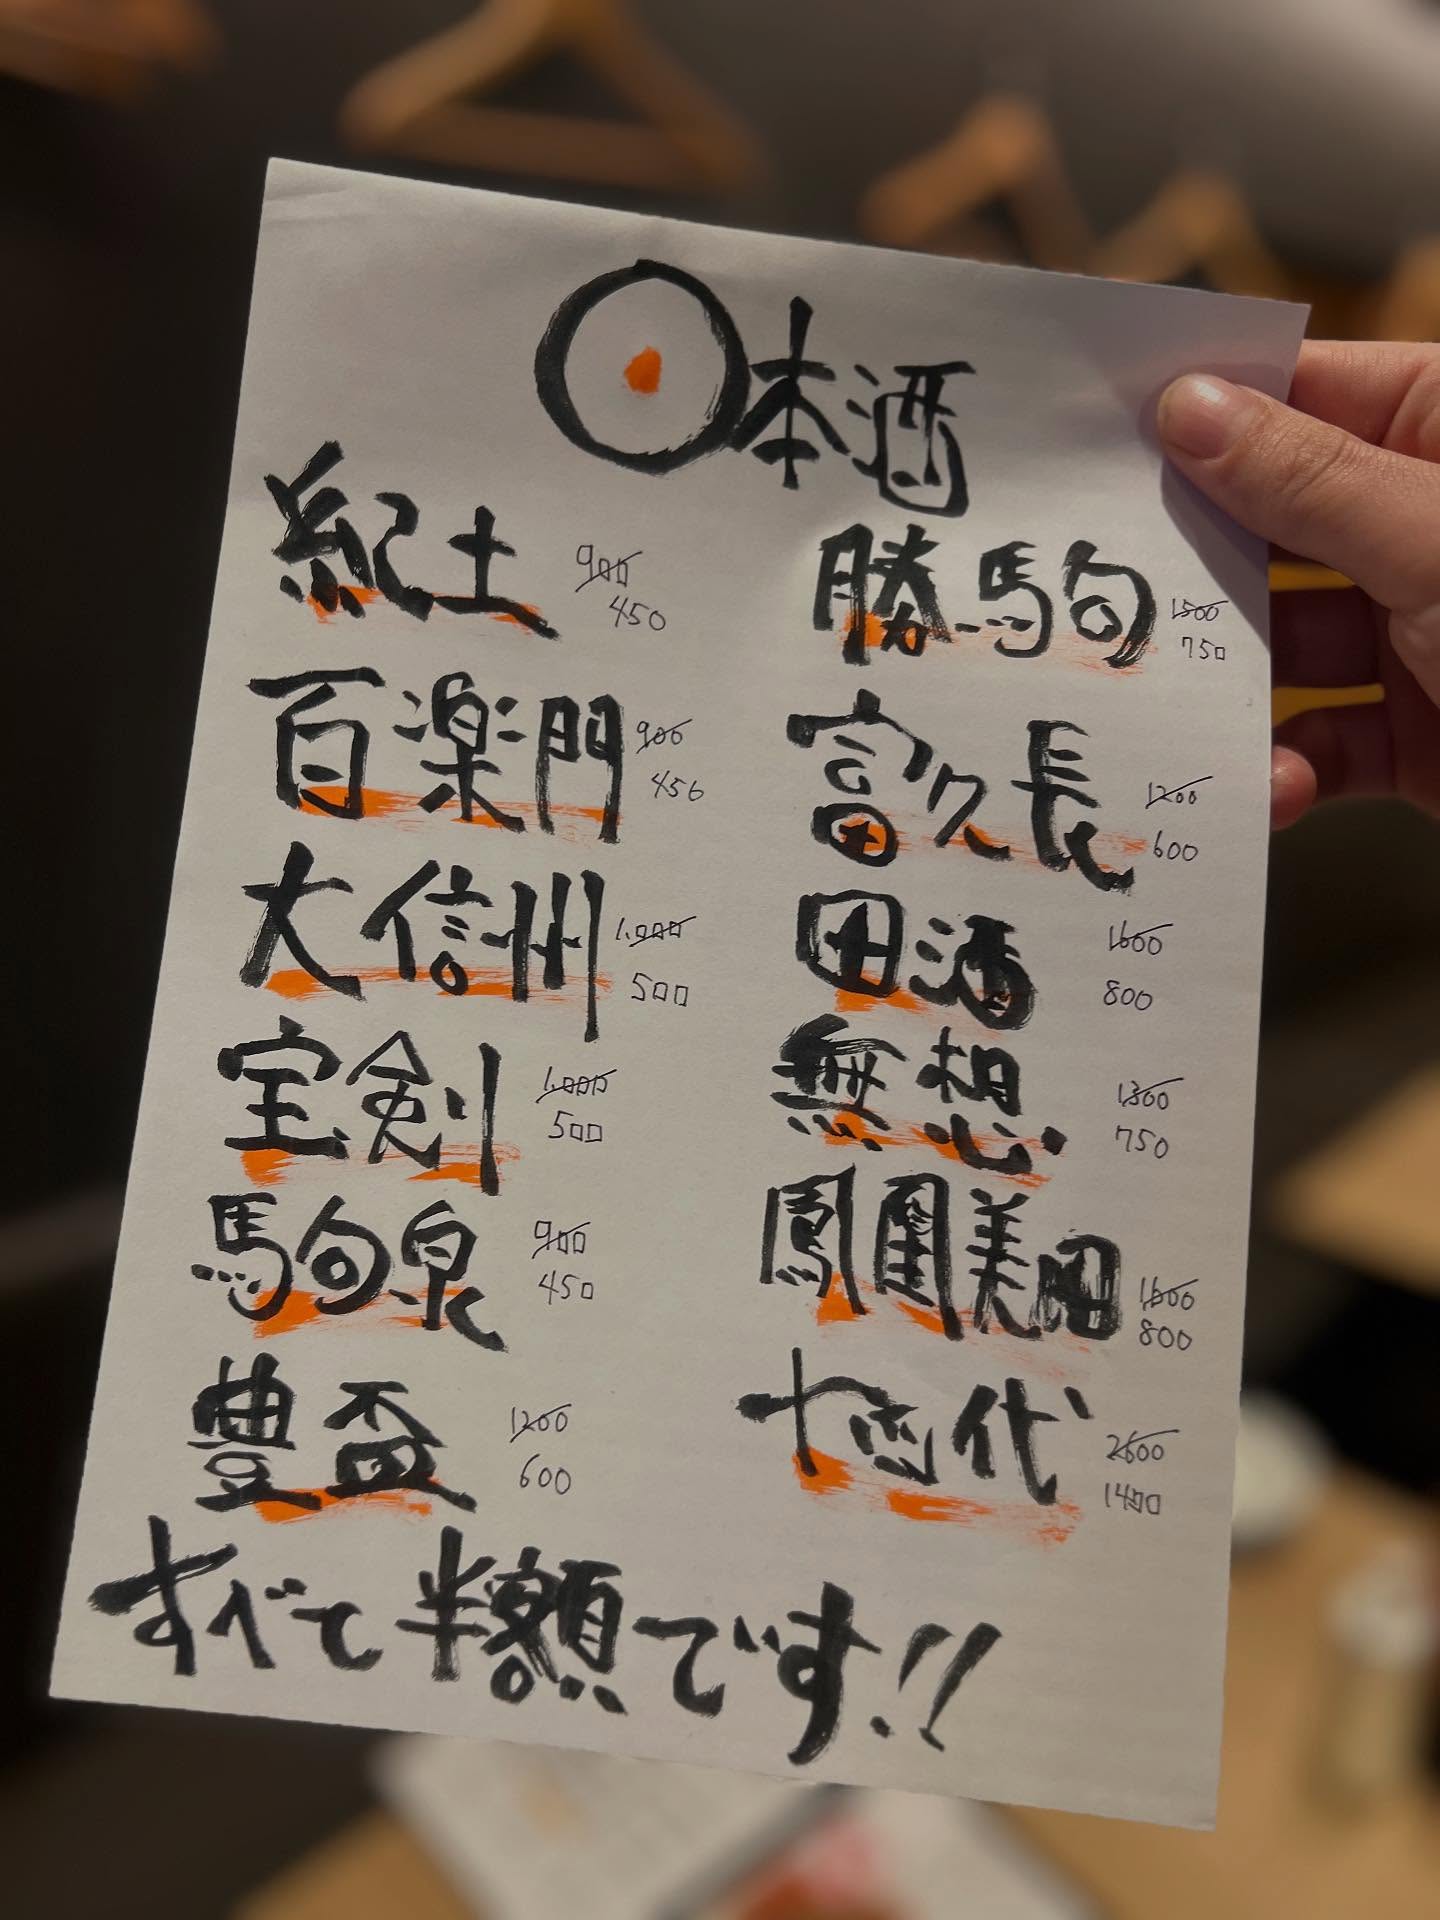 日本酒
紀土 900 450
百楽門 900 450
大信州 1,000 500
宝剣 1,000 500
駒泉 900 450
豊盃 1200 600
勝駒 1500 750
富久長 1200 600
田酒 1600 800
無想 1500 750
鳳凰美田 1600 800
十四代 2600 1400
すべて半額です!!